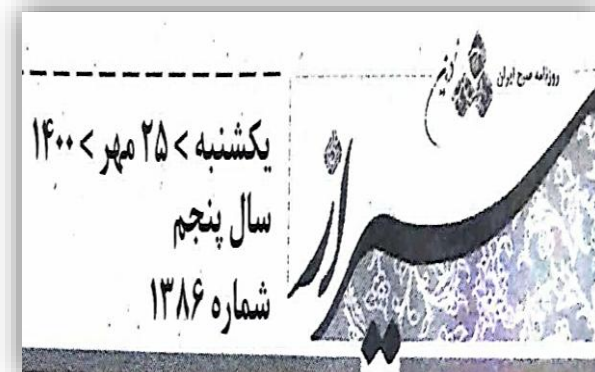 روزنامه صبح ایران
شیراز
نوین
یکشنبه > ۲۵ مهر > ۱۴۰۰
سال پنجم
شماره ۱۳۸۶